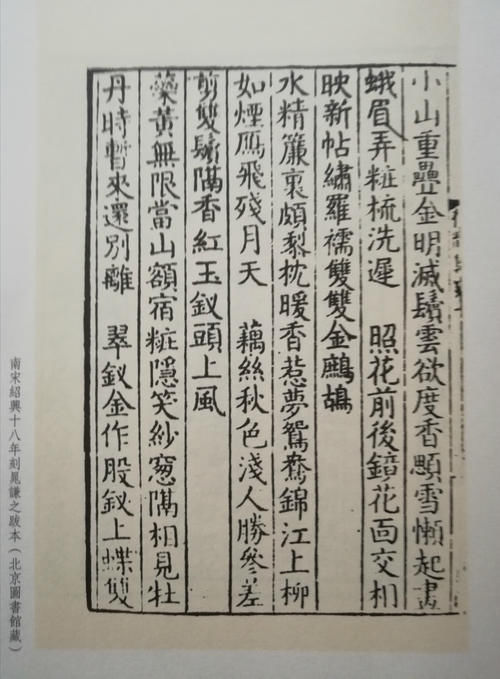 小山重疊金明滅鬢雲欲度香顋雪懶起畫
蛾眉弄粧梳洗遲　照花前後鏡花面交相
映新帖繡羅襦雙雙金鷓鴣
水精簾裏頗黎枕暖香惹夢鴛鴦錦江上柳
如煙鴈飛殘月天　藕絲秋色淺人勝參差
剪雙鬢隔香紅玉釵頭上風
蘂黃無限當山額宿粧隱笑紗窗隔相見牡
丹時暫來還別離　翠釵金作股釵上蝶雙
南宋紹興十八年刻晁謙之跋本（北京圖書館藏）